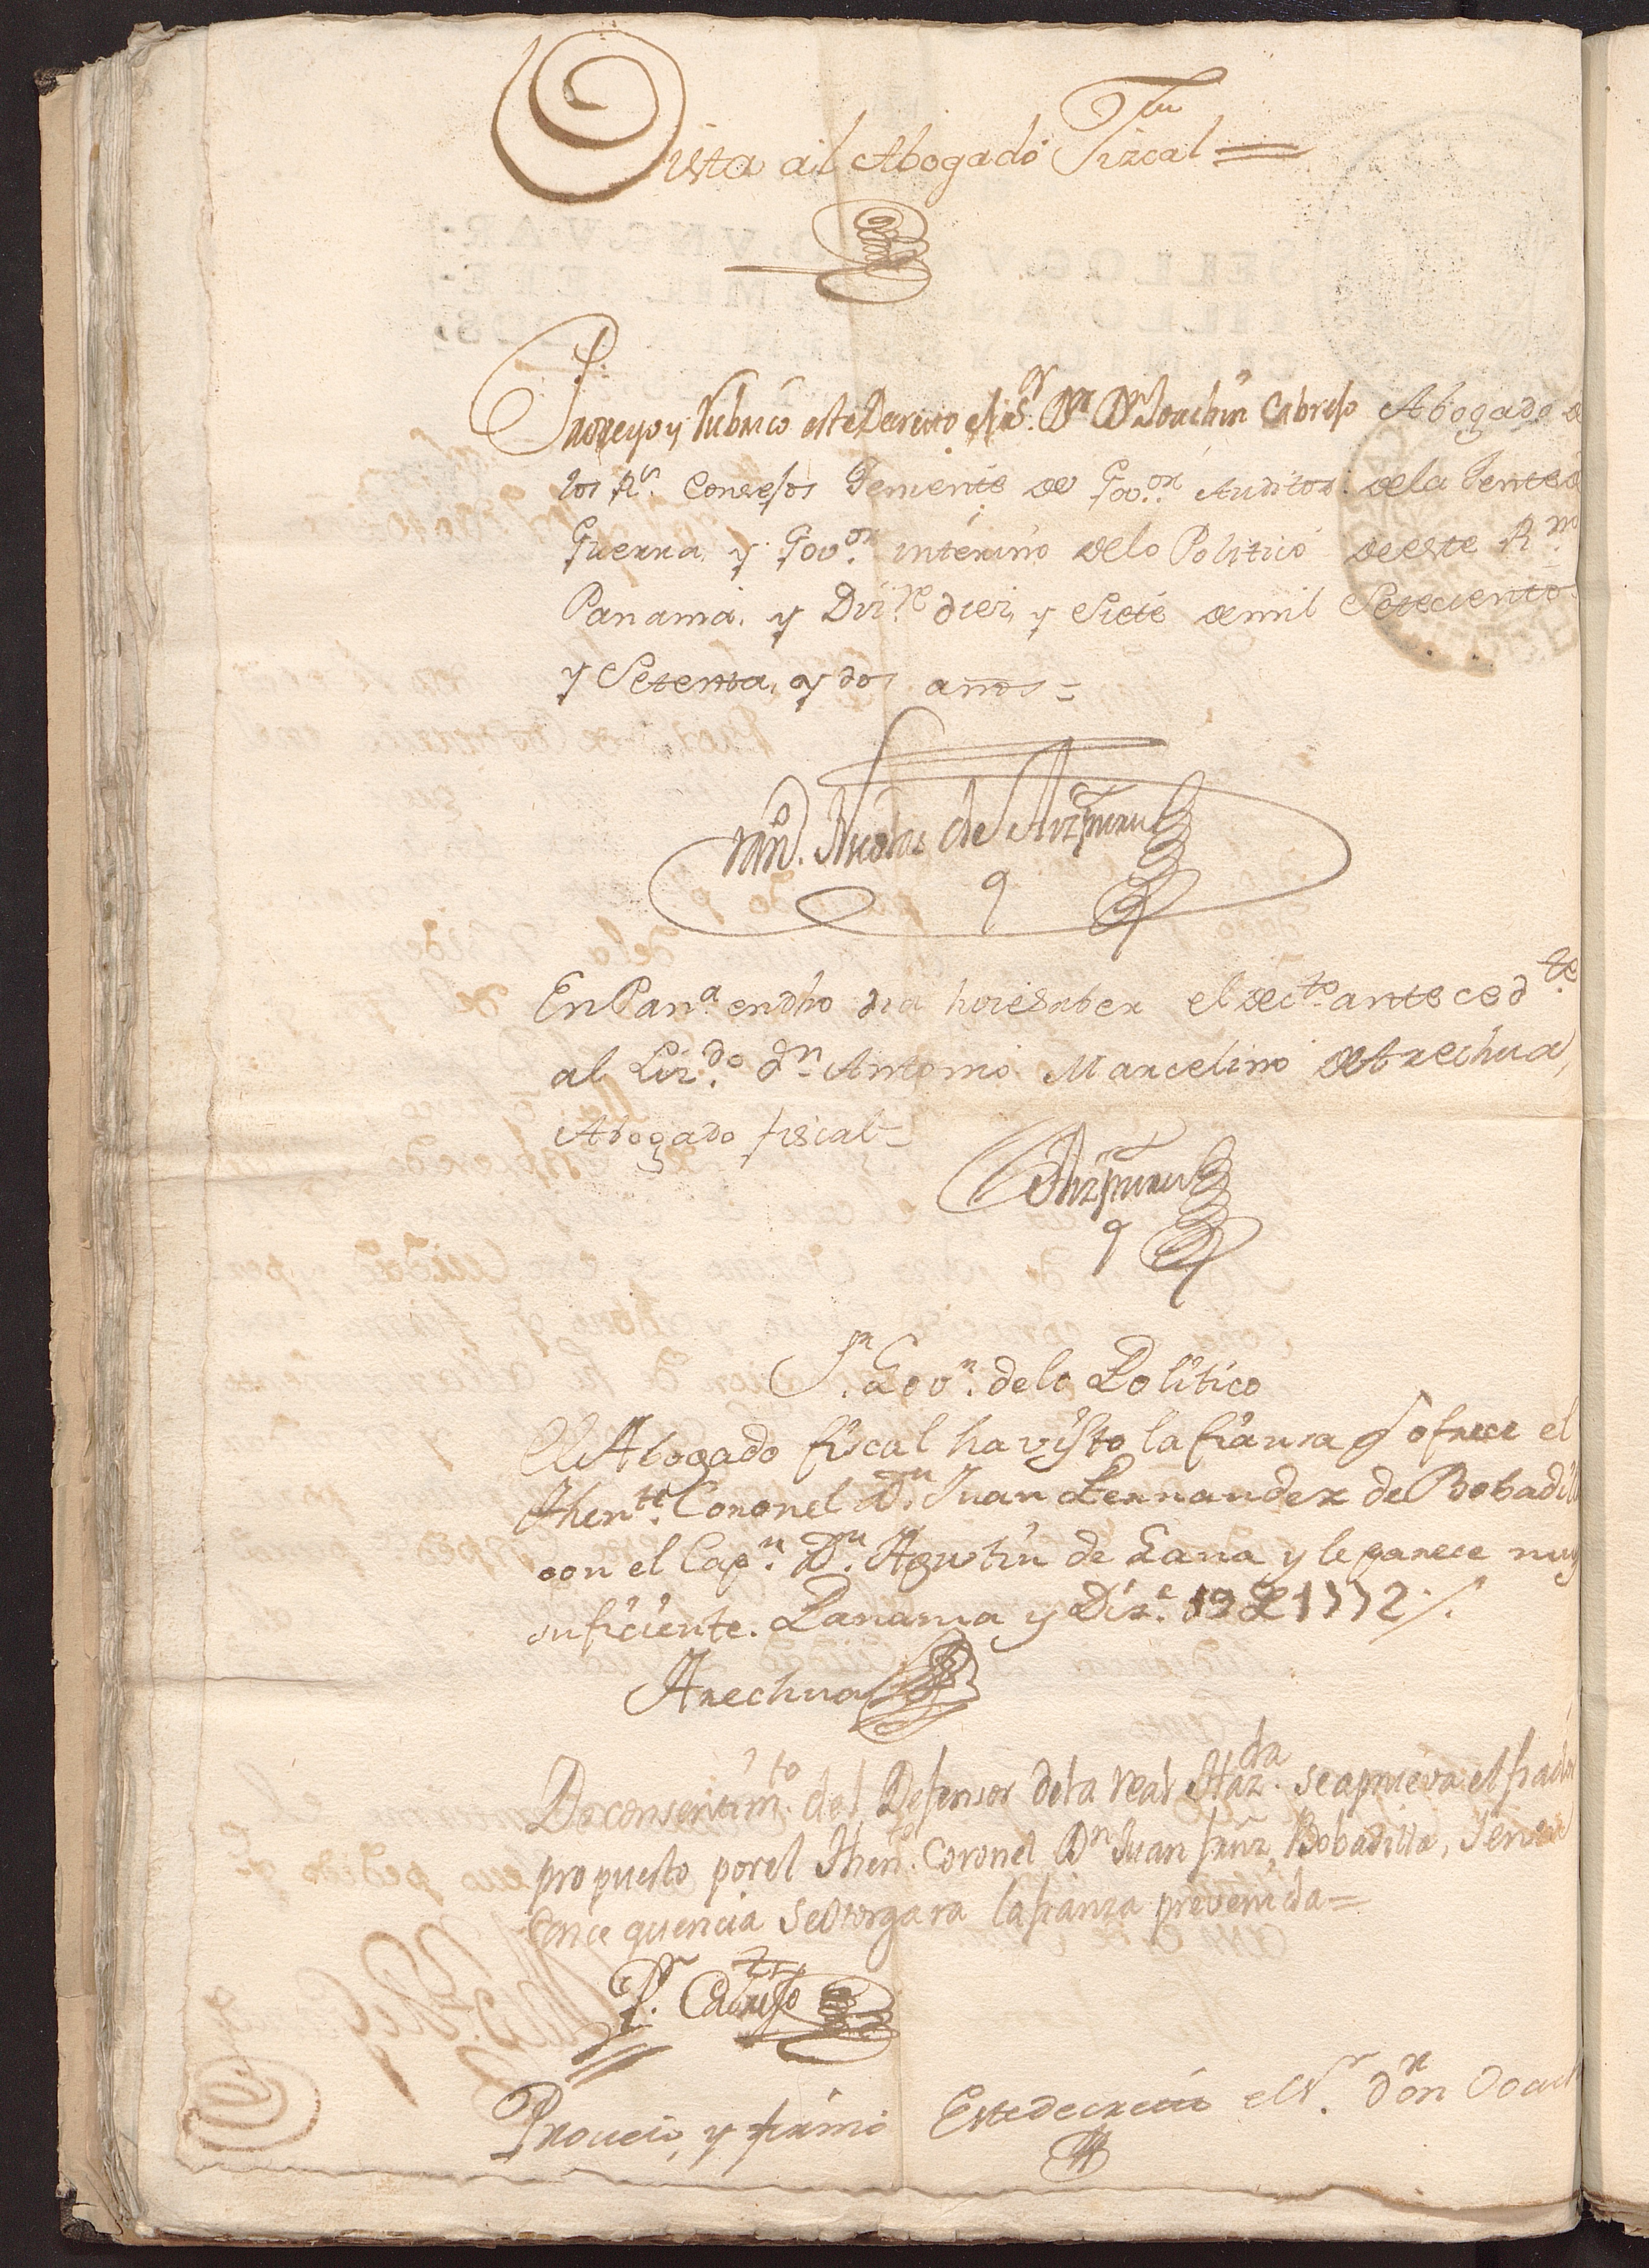 Vista al Abogado Fizcal =
Proveyo y Rubrico este Decreto el S.r D.r D.n Joachin Cabrejo Abogado de
los R.s Consejos Theniente de Gov.or Auditor de la Gente de
Guerra, y Gov.or interino de lo Politico de este R.no
Panama, y Diz.re diez, y Siete de mil Setecientos
y Setenta, y dos años =
Nicolas de Aizpuru
En Pan.a en dho dia hice saber el dec.to anteced.te
al Liz.do d.n Antonio Marcelino de Arechua,
Abogado fiscal =
Aizpuru
S.r Gov.r de lo Politico
El Abogado fiscal ha visto la fianza q ofrece el
Then.te Coronel D.n Juan Fernandez de Bobadilla
con el Cap.n D.n Agustin de Gana y le parece muy
suficiente. Panama y Diz.e 19 de 1772
Arechua
De consentim.to del Defensor de la real Haz.da se aprueva el fiador
propuesto por el Then.te Coronel D.n Juan frnz Bobadilla, Y en su
Conce quencia Se otorgara la fianza prevenida =
D.r Cabrejo
Proveió, y firmó Este decreto el S.r D.or D.n Joach